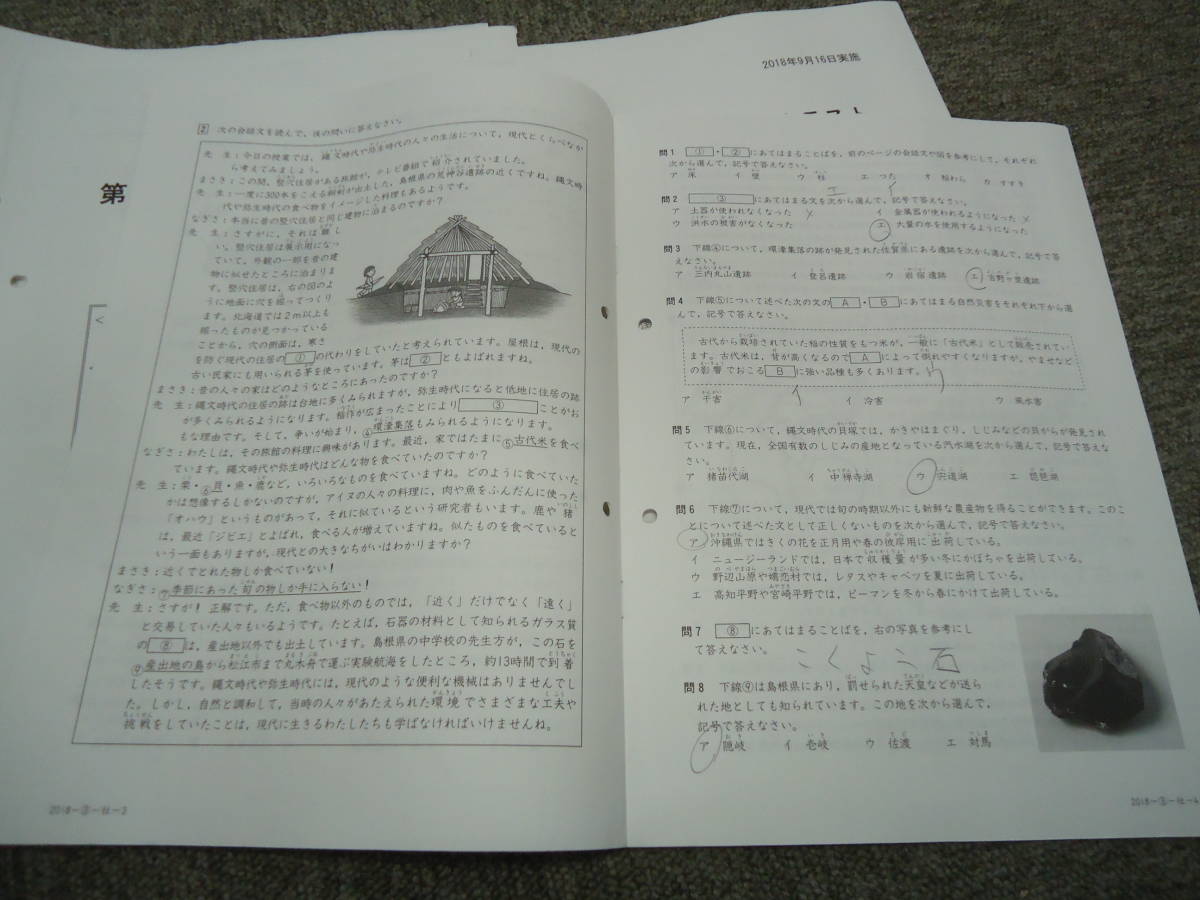 2018年9月16日実施
第
2 次の会話文を読んで、後の問いに答えなさい。
先 生：今日の授業では、縄文時代や弥生時代の人々の生活について、現代とくらべなが
ら考えてみましょう。
まさき：この間、竪穴住居がある旅館が、テレビ番組で紹介されていました。
先 生：一度に300本をこえる銅剣が出土した、島根県の荒神谷遺跡の近くですね。縄文時
代や弥生時代の食べ物をイメージした料理もあるようです。
なぎさ：本当に昔の竪穴住居と同じ建物に泊まるのですか？
先 生：さすがに、それは難し
い。竪穴住居は展示用になっ
ていて、外観の一部を昔の建
物に似せたところに泊まりま
す。竪穴住居は、右の図のよ
うに地面に穴を掘ってつくり
ます。北海道では2m以上も
掘ったものが見つかっている
ことから、穴の側面は、寒さ
を防ぐ現代の住居の①の代わりをしていたと考えられています。屋根は、現代の
古い民家にも用いられる茅を使っています。茅は②ともよばれますね。
まさき：昔の人々の家はどのようなところにあったのですか？
先 生：縄文時代の住居の跡は台地に多くみられますが、弥生時代になると低地に住居の跡
が多くみられるようになります。稲作が広まったことにより③ことがお
もな理由です。そして、争いが始まり、④環濠集落もみられるようになります。
なぎさ：わたしは、その旅館の料理に興味があります。最近、家ではたまに⑤古代米を食べ
ています。縄文時代や弥生時代はどんな物を食べていたのですか？
先 生：栗・⑥貝・魚・鹿など、いろいろなものを食べていますね。どのように食べていた
かは想像するしかないのですが、アイヌの人々の料理に、肉や魚をふんだんに使った
「オハウ」というものがあって、それに似ているという研究者もいます。鹿や猪
は、最近「ジビエ」とよばれ、食べる人が増えていますね。似たものを食べていると
いう一面もありますが、現代との大きなちがいはわかりますか？
まさき：近くでとれた物しか食べていない！
なぎさ：⑦季節にあった旬の物しか手に入らない！
先 生：さすが！ 正解です。ただ、食べ物以外のものでは、「近く」だけでなく「遠く」
と交易していた人々もいるようです。たとえば、石器の材料として知られるガラス質
の⑧は、産出地以外でも出土しています。島根県の中学校の先生方が、この石を
⑨産出地の島から松江市まで丸木舟で運ぶ実験航海をしたところ、約13時間で到着
したそうです。縄文時代や弥生時代には、現代のような便利な機械はありませんでし
た。しかし、自然と調和して、当時の人々があたえられた環境でさまざまな工夫や
挑戦をしていたことは、現代に生きるわたしたちも学ばなければいけませんね。
2018－③－社－3
問1 ①・②にあてはまることばを、前のページの会話文や図を参考にして、それぞれ
次から選んで、記号で答えなさい。
ア 床 イ 壁 ウ 柱 エ つた オ 稲わら カ すすき
エ イ
問2 ③にあてはまる文を次から選んで、記号で答えなさい。
ア 土器が使われなくなった イ 金属器が使われるようになった
ウ 洪水の被害がなくなった エ 大量の水を使用するようになった
問3 下線④について、環濠集落の跡が発見された佐賀県にある遺跡を次から選んで、記号で答
えなさい。
ア 三内丸山遺跡 イ 登呂遺跡 ウ 岩宿遺跡 エ 吉野ヶ里遺跡
問4 下線⑤について述べた次の文のA・Bにあてはまる自然災害をそれぞれ下から選
んで、記号で答えなさい。
古代から栽培されていた稲の性質をもつ米が、一般に「古代米」として販売されてい
ます。古代米は、背が高くなるのでAによって倒れやすくなりますが、やませなど
の影響でおこるBに強い品種も多くあります。
イ ウ
ア 干害 イ 冷害 ウ 風水害
問5 下線⑥について、縄文時代の貝塚では、かきやはまぐり、しじみなどの貝がらが発見され
ています。現在、全国有数のしじみの産地となっている汽水湖を次から選んで、記号で答えな
さい。
ア 猪苗代湖 イ 中禅寺湖 ウ 宍道湖 エ 琵琶湖
問6 下線⑦について、現代では旬の時期以外にも新鮮な農産物を得ることができます。このこ
とについて述べた文として正しくないものを次から選んで、記号で答えなさい。
ア 沖縄県ではきくの花を正月用や春の彼岸用に出荷している。
イ ニュージーランドでは、日本で収穫量が多い冬にかぼちゃを出荷している。
ウ 野辺山原や嬬恋村では、レタスやキャベツを夏に出荷している。
エ 高知平野や宮崎平野では、ピーマンを冬から春にかけて出荷している。
問7 ⑧にあてはまることばを、右の写真を参考にし
て答えなさい。
こくよう石
問8 下線⑨は島根県にあり、罰せられた天皇などが送ら
れた地としても知られています。この地を次から選んで、
記号で答えなさい。
ア 隠岐 イ 壱岐 ウ 佐渡 エ 対馬
2018－③－社－4